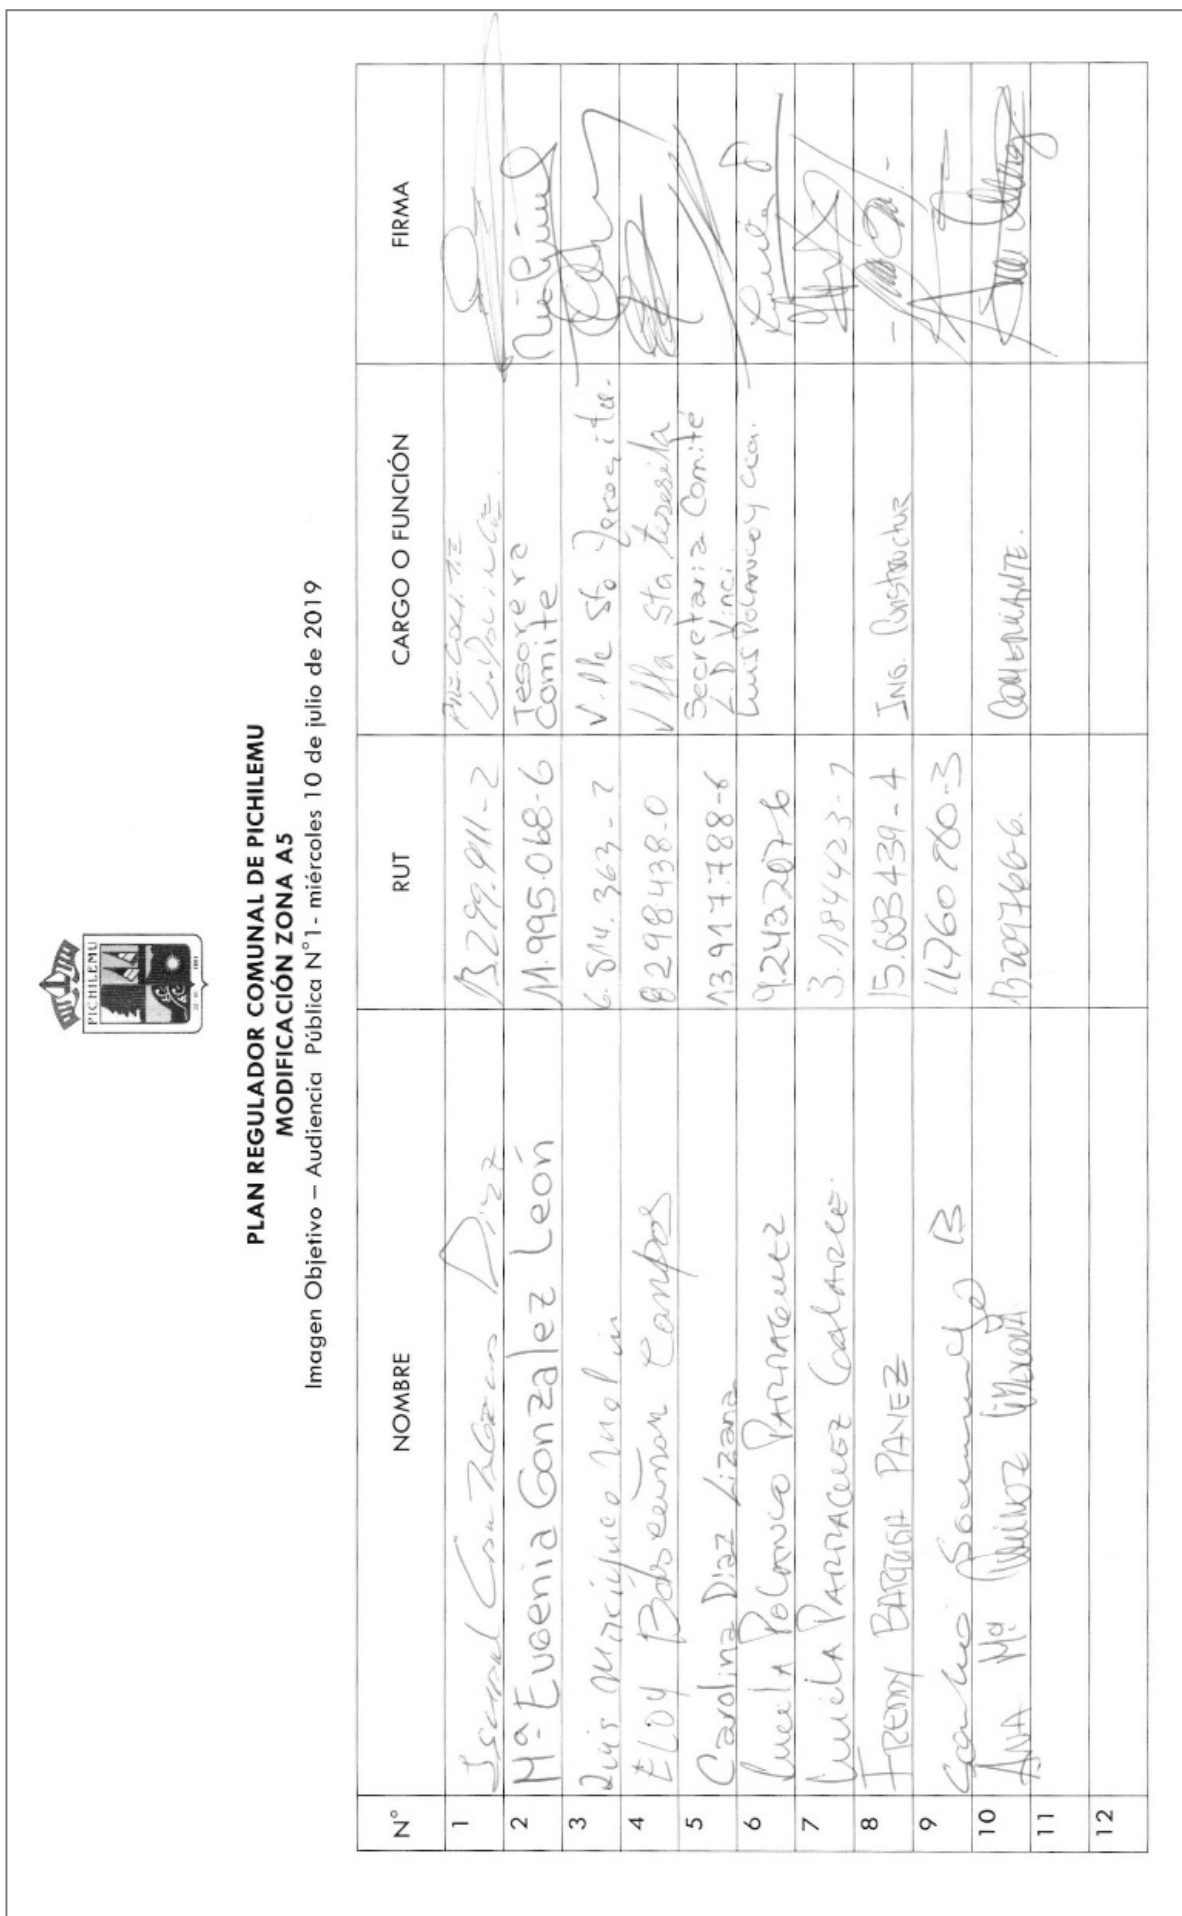 PICHILEMU
PLAN REGULADOR COMUNAL DE PICHILEMU
MODIFICACIÓN ZONA A5
Imagen Objetivo – Audiencia Pública N°1 - miércoles 10 de julio de 2019
N° NOMBRE RUT CARGO O FUNCIÓN FIRMA
1 13.299.911-2
2 Mª Eugenia Gonzalez León 11.995.068-6 Tesorera Comite
3 Luis 6.814.363-7 Villa Sta Teresita.
4 ELOY Campos 8298438-0 Villa Sta teresita
5 Carolina Diaz Lizana 13.917.788-6 Secretaria Comité L.D Vinci
6 Lucila Polanco Parraguez 9.243207-6 Luis Polanco y Cia.
7 Lucila Parraguez 3.184423-1
8 FREDDY BARRERA PAVEZ 15.683439-4 ING. Constructor
9 B 11760780-3
10 ANA Mª Muñoz 13209766-6. COMERCIANTE.
11
12